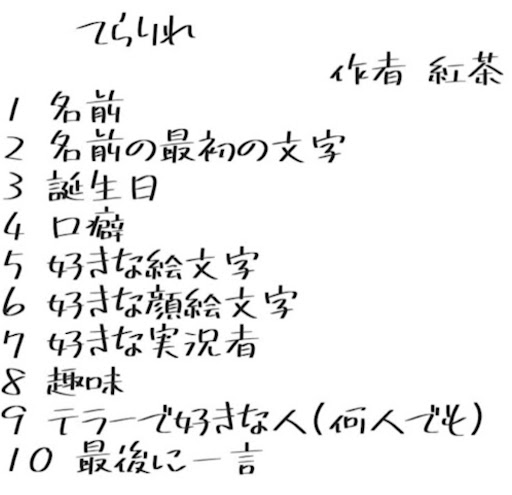 てらりれ
作者 紅茶
1 名前
2 名前の最初の文字
3 誕生日
4 口癖
5 好きな絵文字
6 好きな顔絵文字
7 好きな実況者
8 趣味
9 テラーで好きな人(何人でも)
10 最後に一言